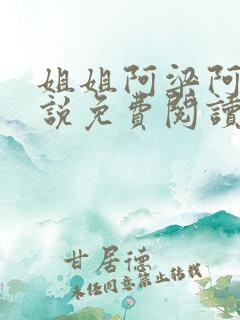 姐姐阿梁阿
說免費閱讀
甘居德
未经同意禁止转载